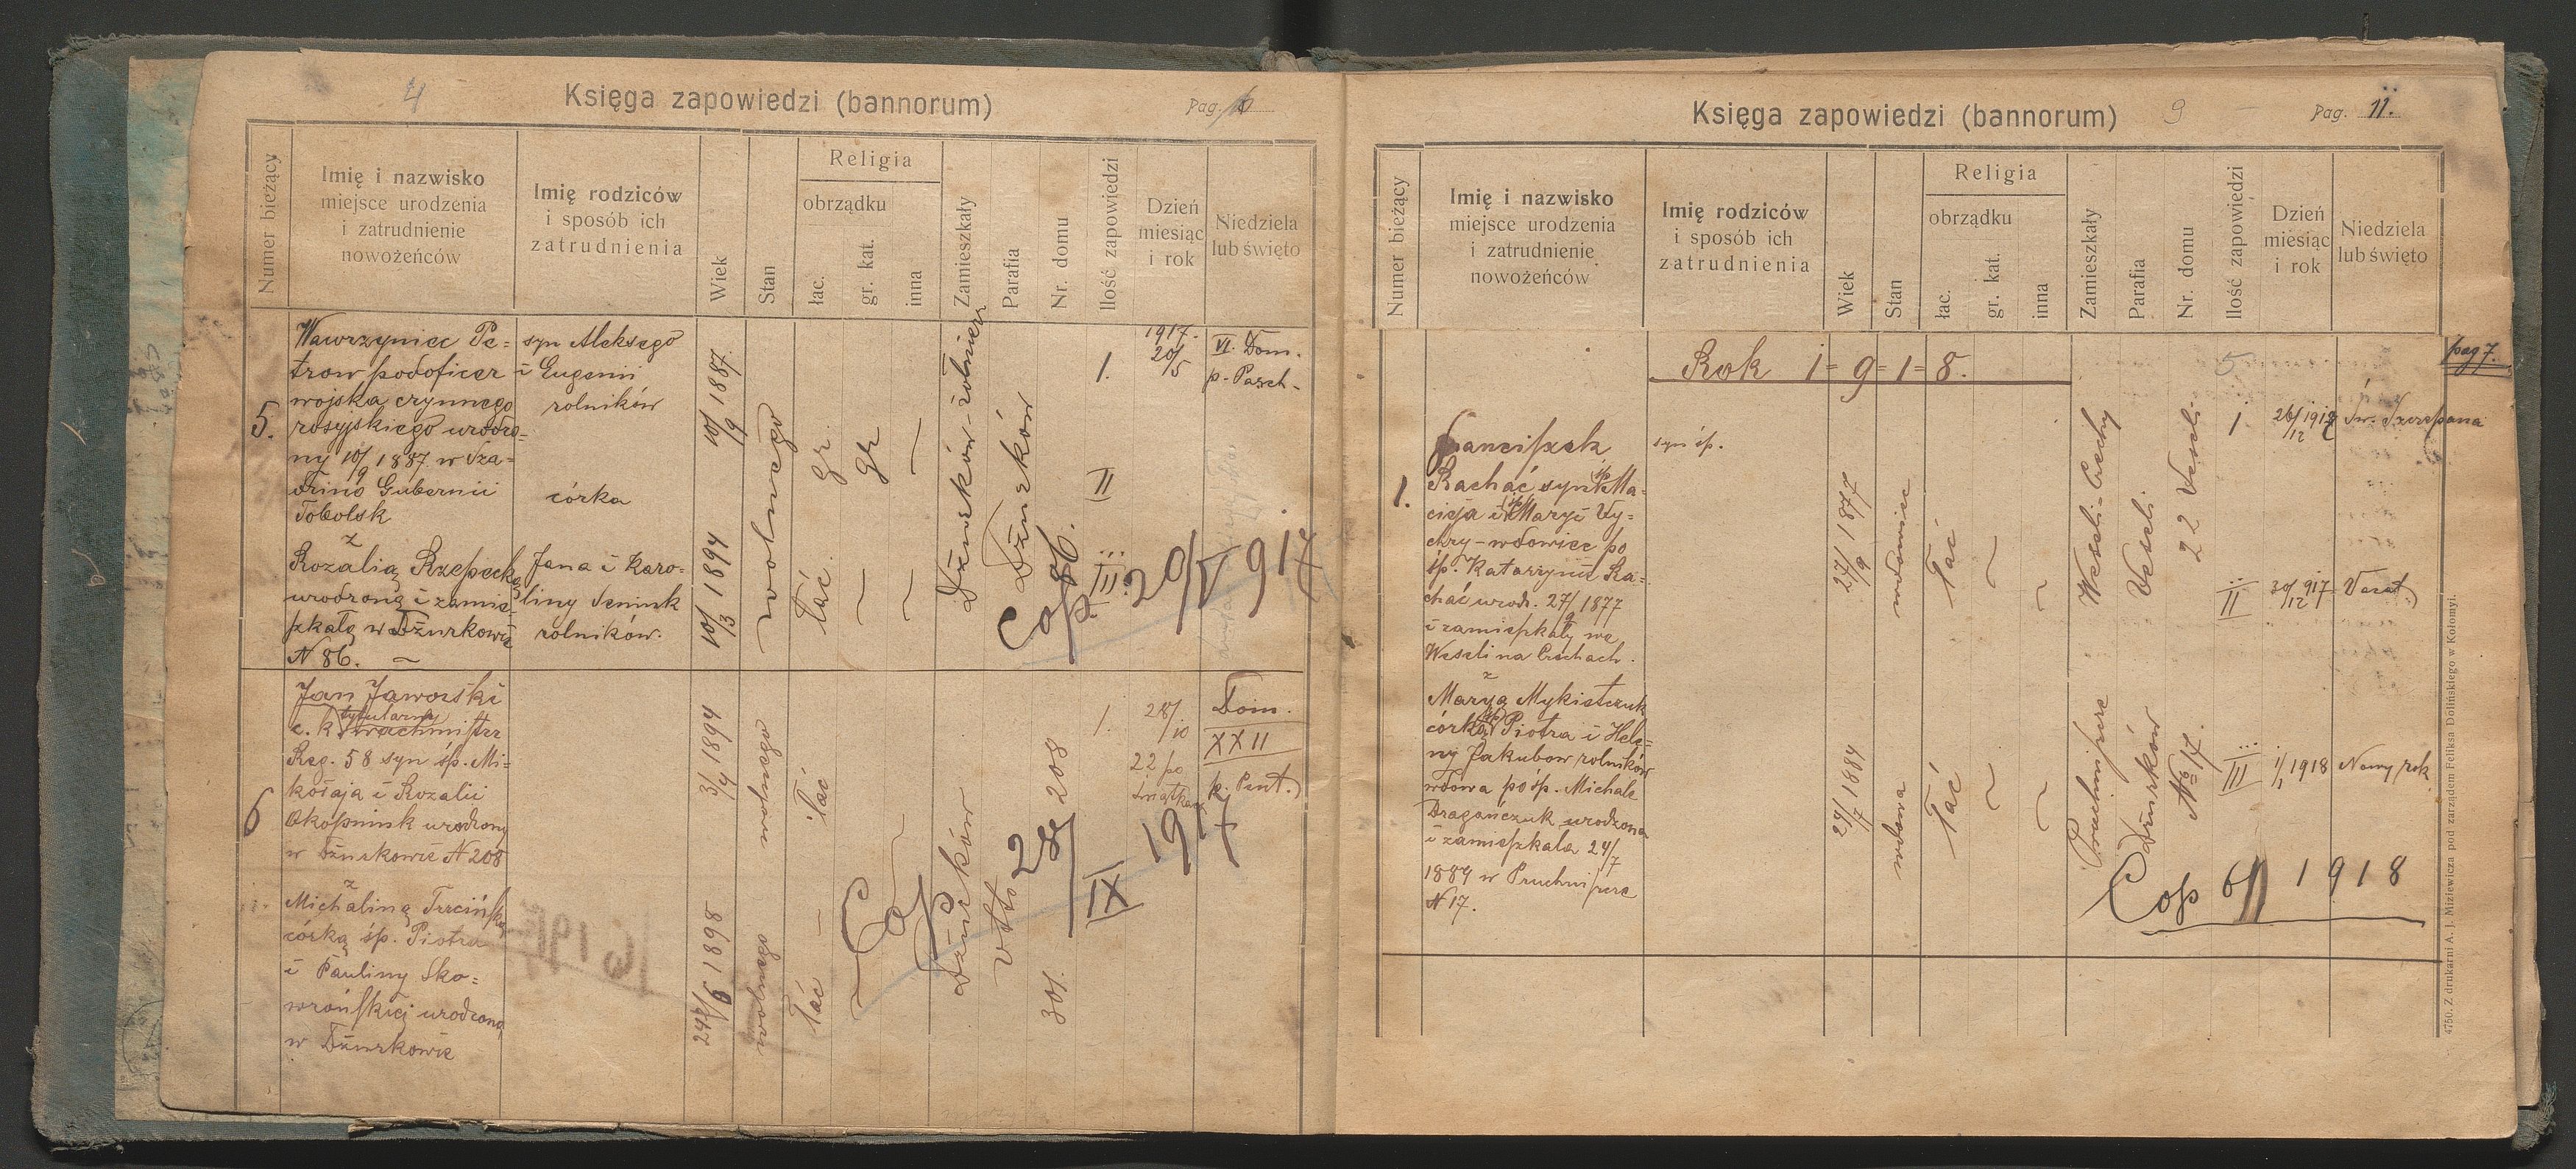 4
Księga zapowiedzi (bannorum)
Pag.
Numer bieżący
Imię i nazwisko
miejsce urodzenia
i zatrudnienie
nowożeńców
Imię rodziców
i sposób ich
zatrudnienia
Wiek
Stan
Religia
obrządku
łac.
gr. kat.
inna
Zamieszkały
Parafia
Nr. domu
Ilość zapowiedzi
Dzień
miesiąc
i rok
Niedziela
lub święto
5.
Wawrzyniec Pe=
trow podoficer
wojska czynnego
rosyjskiego urodzo=
ny 10/9 1887 w
Gubernii
Tobolsk
z
Rozalią Rzepecką
urodzoną i zamie=
szkałą w Dżurkowie
N 86.
syn Aleksego
i Eugenii
rolników
córka
Jana i Karo=
liny Seniuk
rolników.
10/9 1887.
10/3 1894
wolnego
gr.
gr
łać.
Dżurków-żołnierz
Dżurków
86.
1.
II
III
1917.
20/5
VI. Dom.
p. Pasch.
Cop. 20/V 917
6
Jan Jaworski
c. k. tytularny wachmistrz
Reg. 58 syn śp. Mi=
kołaja i Rozalii
Okopniuk urodzony
w Dżurkowie N 208
z
Michaliną Trzcińską
córką śp. Piotra
i Pauliny Sko=
wrońskiej urodzoną
w Dżurkowie
3/4 1894
1898
wolnego
wolnego
łać
łać
Dżurków
208
301.
1.
28/10
22 po
Świątkach
Dom.
XXII
p. Pent.
Cop 28/IX 1917
Księga zapowiedzi (bannorum)
9
Pag. 11.
Numer bieżący
Imię i nazwisko
miejsce urodzenia
i zatrudnienie
nowożeńców
Imię rodziców
i sposób ich
zatrudnienia
Wiek
Stan
Religia
obrządku
łac.
gr. kat.
inna
Zamieszkały
Parafia
Nr. domu
Ilość zapowiedzi
Dzień
miesiąc
i rok
Niedziela
lub święto
Rok 1=9=1=8.
pag 7.
1.
Franciszek
Racháć syn śp. Ma=
cieja i śp. Maryi Vy=
chry - wdowiec po
śp. Katarzynie Ra=
chać urodz. 27/9 1877
i zamieszkały we
Weseli na Czechach.
z
Maryą Mykietczuk
córką śp. Piotra i Hele=
ny Jakubow rolników
wdowa po śp. Michale
Dragańczuk urodzona
i zamieszkała 24/7
1884 w Pruchniszcze
N 17.
syn śp.
27/9 1877
24/7 1884
wdowiec
wdowa
łać
łać
Weseli-Czechy
Veseli
22 Veseli
Pruchniszcze
Dżurków
No 17.
1.
II
III
26/12 1917
30/12 917
1/1 1918
Św. Szczepana
Vacat
Nowy rok
Cop 6/1 1918
4750. Z drukarni A. J. Miziewicza pod zarządem Feliksa Dolińskiego w Kołomyi.